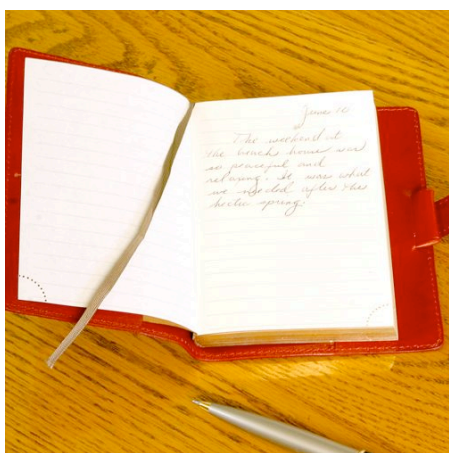 June 16
The weekend at
the beach house was
so peaceful and
relaxing. It was what
we needed after this
hectic spring.